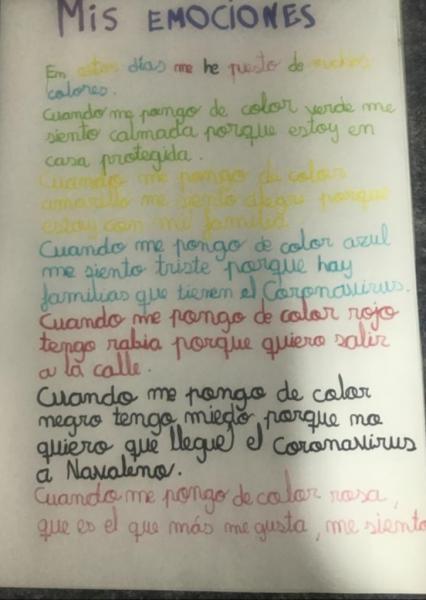 Mis EMOCIONES
En estos días me he puesto de muchos
colores.
Cuando me pongo de color verde me
siento calmada porque estoy en
casa protegida.
Cuando me pongo de color
amarillo me siento alegre porque
estoy con mi familia.
Cuando me pongo de color azul
me siento triste porque hay
familias que tienen el Coronavirus.
Cuando me pongo de color rojo
tengo rabia porque quiero salir
a la calle.
Cuando me pongo de color
negro tengo miedo porque no
quiero que llegue el coronavirus
a Navaleno.
Cuando me pongo de color rosa,
que es el que más me gusta, me siento